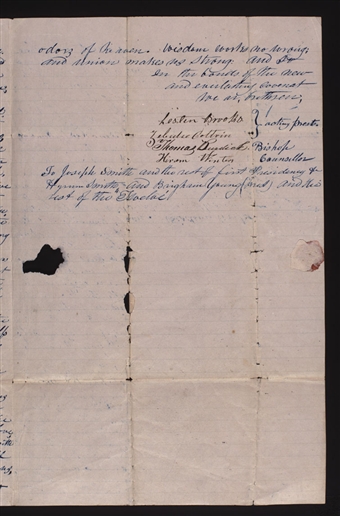 odors of heaven. wisdom works no wrong
and union makes us strong and so
in the bonds of the new
and everlasting covenant
we are, brethren,
Lester Brooks } acting Presedt
Zebedee Coltrin
Thomas Burdick Bishop
Hiram Winters Counsellor
To Joseph Smith and the rest of first Presidency &
Hyrum Smith and Brigham Young (pres) and the
rest of the